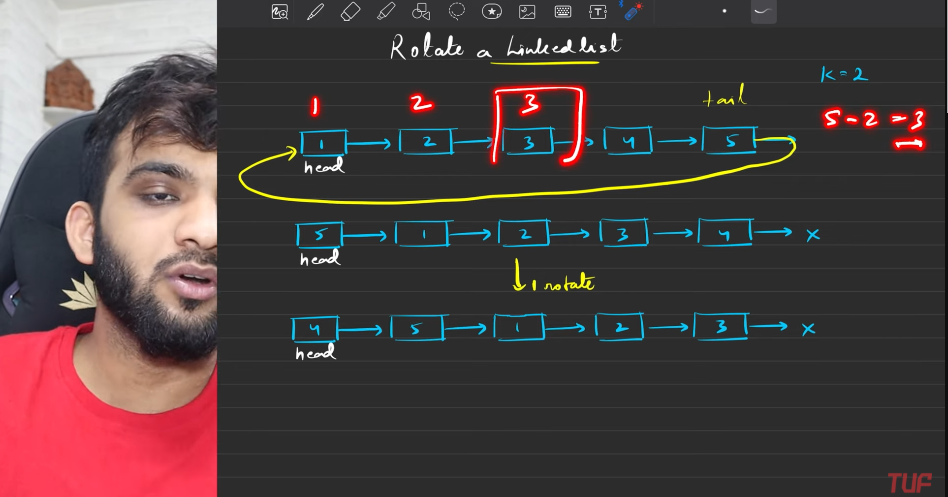 Rotate a Linkedlist
K = 2
1 2 3 tail
5 - 2 = 3
1 2 3 4 5
head
5 1 2 3 4 x
head
1 rotate
4 5 1 2 3 x
head
TUF